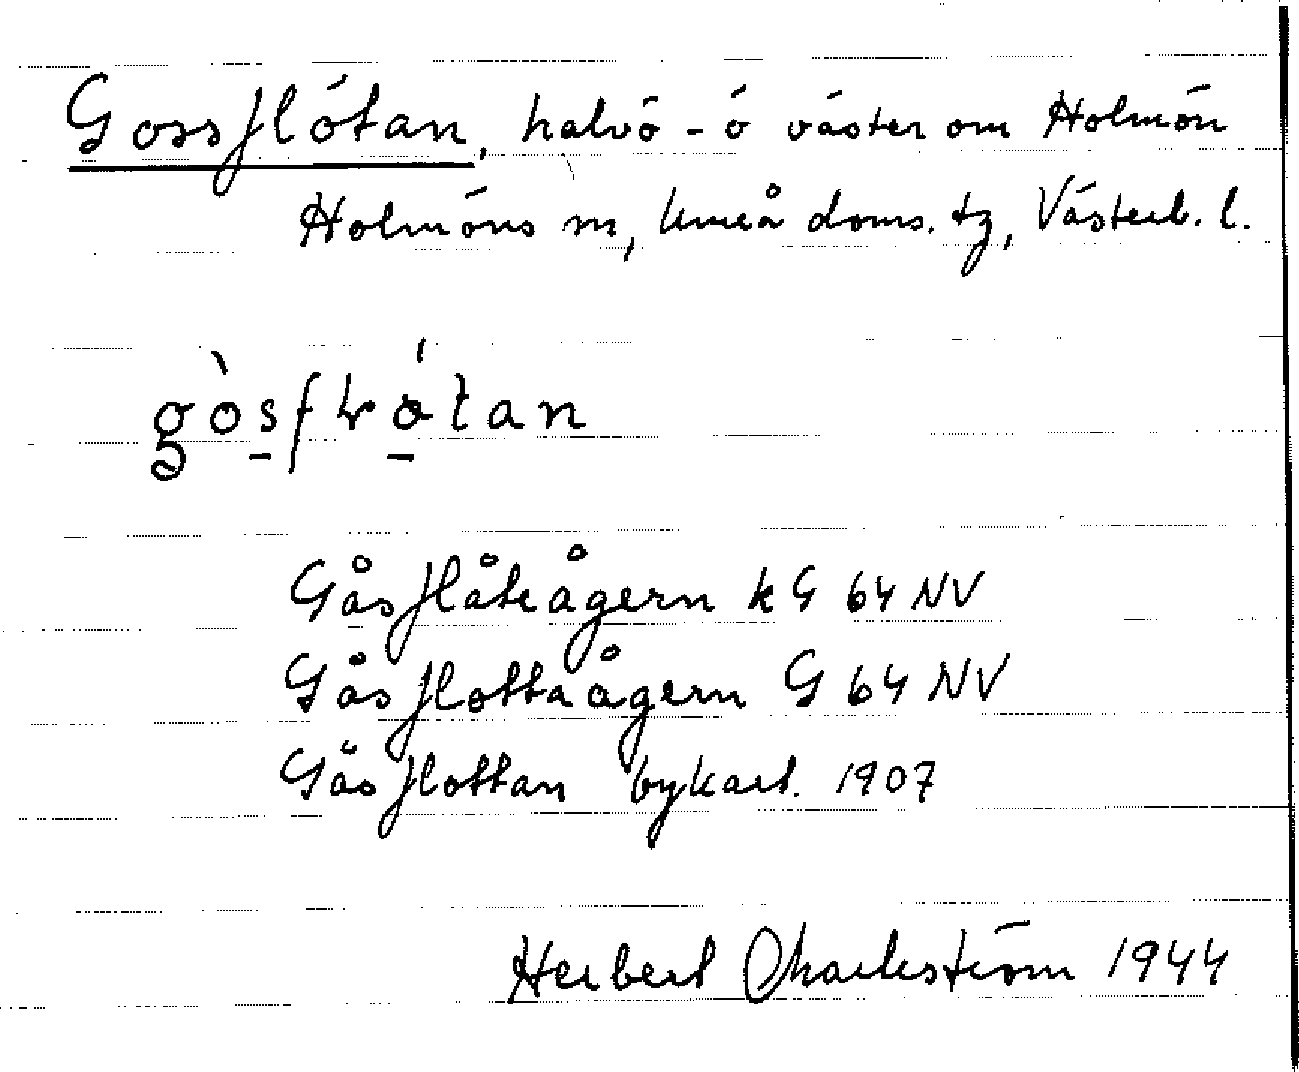 Gossflötan, halvö - ö väster om Holmön
Holmöns sn, Umeå doms. tg, Västerb. l.
Gåsflåteågern kG 64 NV
Gåsflottaågern G 64 NV
Gåsflottan bykart. 1907
Herbert Charleström 1944